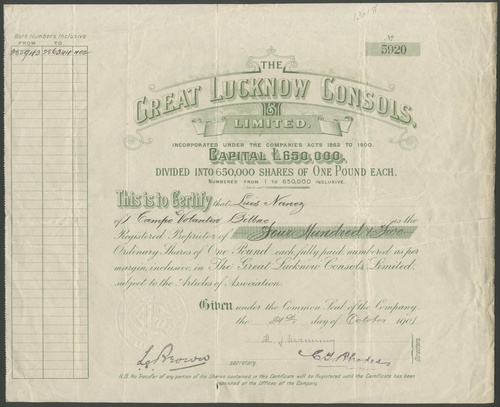 Both Numbers Inclusive
FROM TO
No
5920
THE
GREAT LUCKNOW CONSOLS,
LIMITED.
INCORPORATED UNDER THE COMPANIES ACTS 1862 TO 1900.
CAPITAL £650,000,
DIVIDED INTO 650,000 SHARES OF ONE POUND EACH.
NUMBERED FROM 1 TO 650,000 INCLUSIVE.
This is to Certify that Luis Nunez
of 1 Campo Volantin Bilbao is the
Registered Proprietor of Four Hundred & Two
Ordinary Shares of One Pound each, fully paid, numbered as per
margin, inclusive, in The Great Lucknow Consols, Limited,
subject to the Articles of Association.
Given under the Common Seal of the Company,
the 24th day of October 1901
secretary.
Directors.
N.B. No Transfer of any portion of the Shares contained in this Certificate will be Registered until the Certificate has been
deposited at the Offices of the Company.